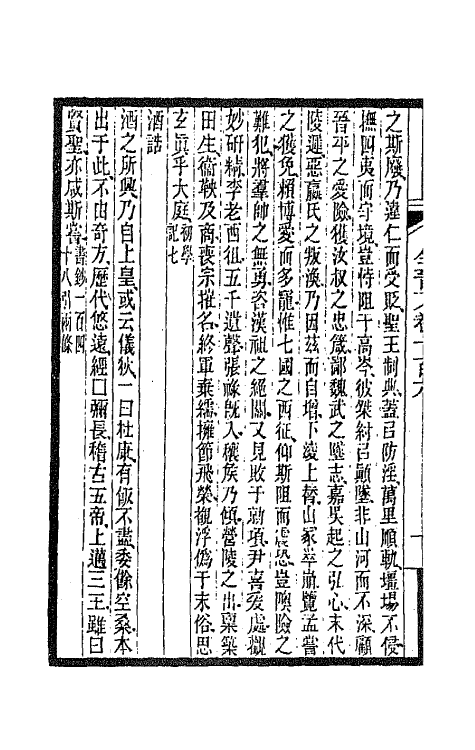 之斯廢乃違仁而受貶聖王制典蓋㠯防淫萬里順軌壃場不侵
撫四夷而守境豈恃阻于高岑彼桀紂㠯顛墜非山河而不深顧
晉平之愛險獲汝叔之忠箴鄙魏武之墜志嘉吳起之弘心末代
陵遲惡嬴氏之叛渙乃因茲而自增下淩上替山冢崒崩覽孟嘗
之獲免賴博愛而多寵惟七國之西征仰斯阻而震恐豈隩險之
難犯將羣帥之無勇咨漢祖之絕關又見敗于勍項尹喜爰處觀
妙研精李老西徂五千遺聲張祿旣入穰矦乃傾營陵之出稟築
田生衞鞅及商喪宗摧名終軍棄繻擁節飛榮觀浮僞于末俗思
玄眞乎大庭初學記七
酒誥
酒之所興乃自上皇或云儀狄一曰杜康有飯不盡委餘空桑本
出于此不由奇方歷代悠遠經口彌長稽古五帝上邁三王雖曰
賢聖亦咸斯嘗書鈔一百四十八引兩條
全晉文卷一百六 十